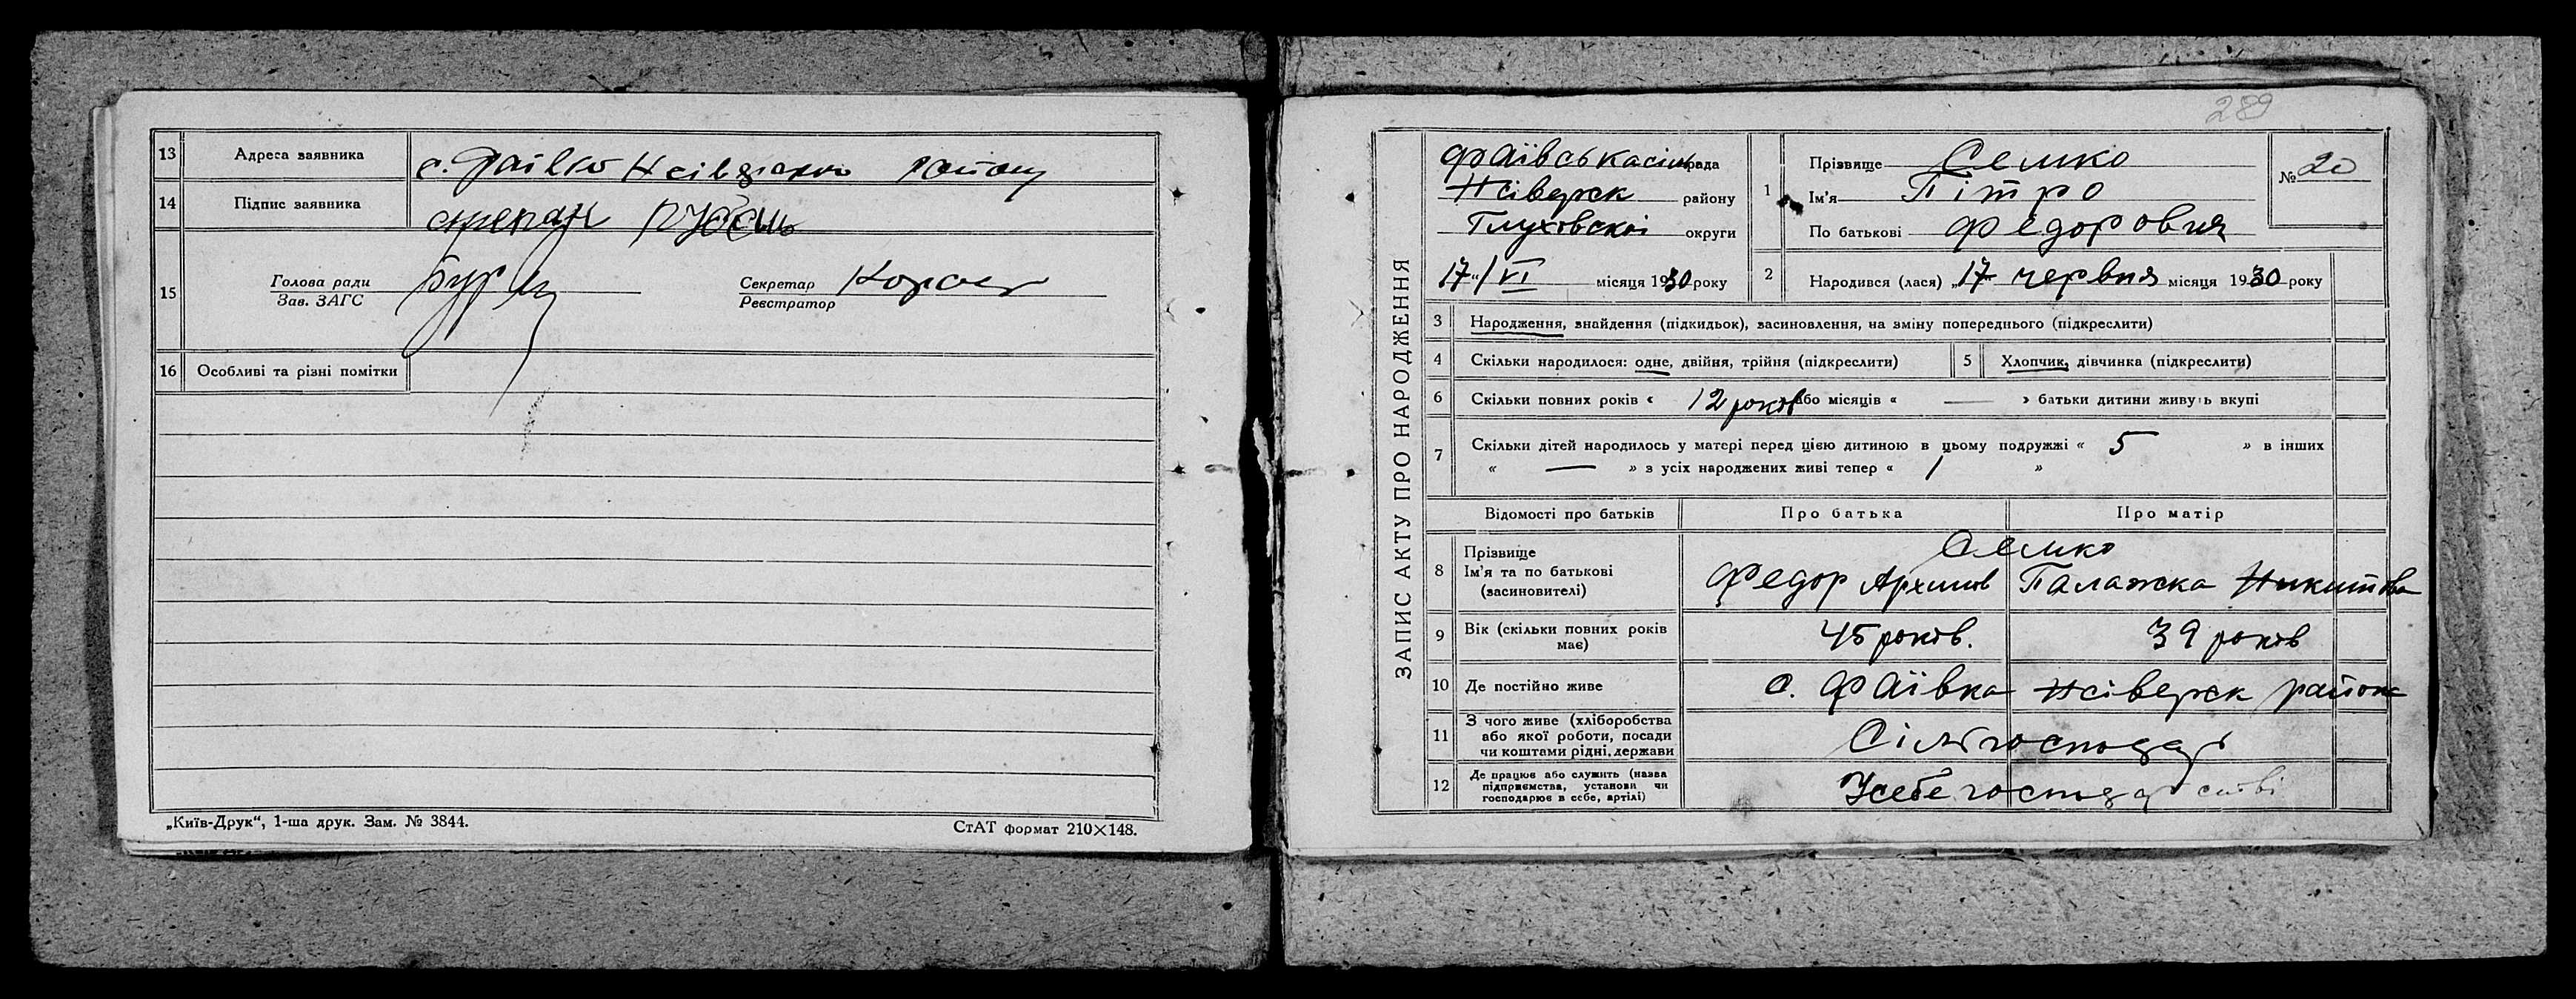 13 Адреса заявника с. Фаївка Нсіверського району
14 Підпис заявника степан
15 Голова ради Секретар
Зав. ЗАГС Реєстратор
16 Особливі та різні помітки
„Київ-Друк“, 1-ша друк. Зам. № 3844. СтАТ формат 210×148.
289
ЗАПИС АКТУ ПРО НАРОДЖЕННЯ
Фаївська сіль рада
Нсіверск району
Глуховскої округи
17 / VI місяця 1930 року
1 Прізвище Семко № 20
Ім’я Пітро
По батькові Федоровия
2 Народився (лася) „17 червня місяця 1930 року
3 Народження, знайдення (підкидьок), засиновлення, на зміну попереднього (підкреслити)
4 Скільки народилося: одне, двійня, трійня (підкреслити) 5 Хлопчик, дівчинка (підкреслити)
6 Скільки повних років « 12 років або місяців « — » батьки дитини живуть вкупі
7 Скільки дітей народилось у матері перед цією дитиною в цьому подружжі « 5 » в інших
« — » з усіх народжених живі тепер « 1 »
Відомості про батьків Про батька Про матір
8 Прізвище Семко
Ім’я та по батькові Федор Архипов Палажка Никитова
(засиновителі)
9 Вік (скільки повних років 45 років. 39 років
має)
10 Де постійно живе с. Фаївка Нсіверск района
11 З чого живе (хліборобства
або якої роботи, посади
чи коштами рідні, держави
12 Де працює або служить (назва
підприємства, установи чи
господарює в себе, артілі)